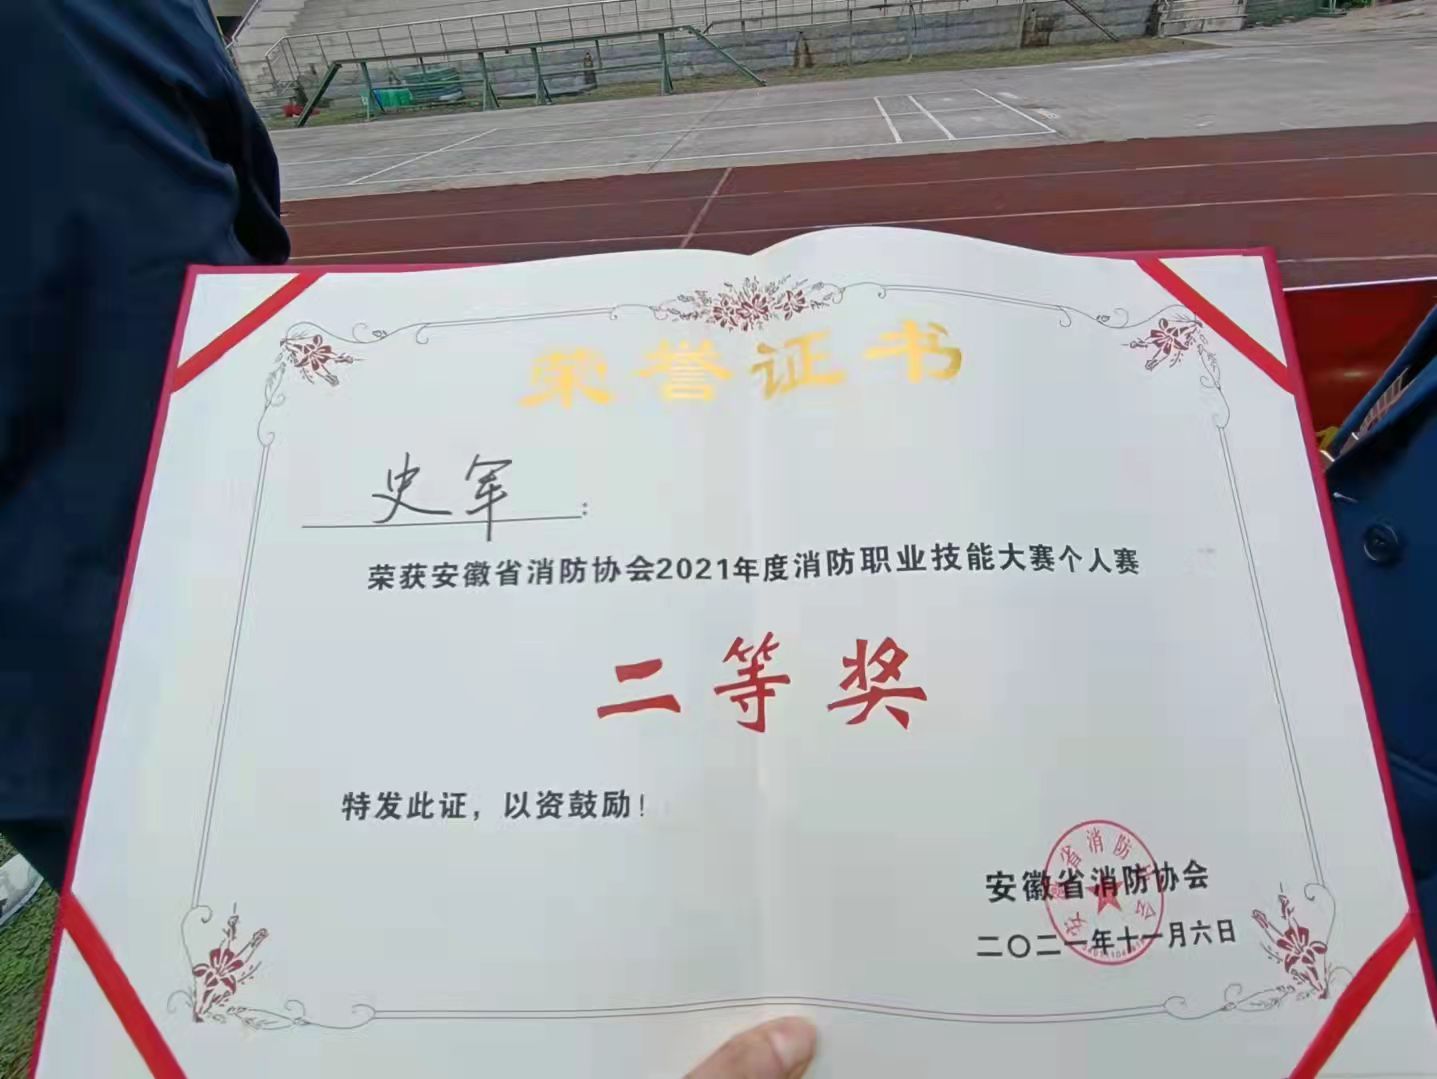 荣誉证书
史军：
荣获安徽省消防协会2021年度消防职业技能大赛个人赛
二等奖
特发此证，以资鼓励！
安徽省消防协会
二〇二一年十一月六日